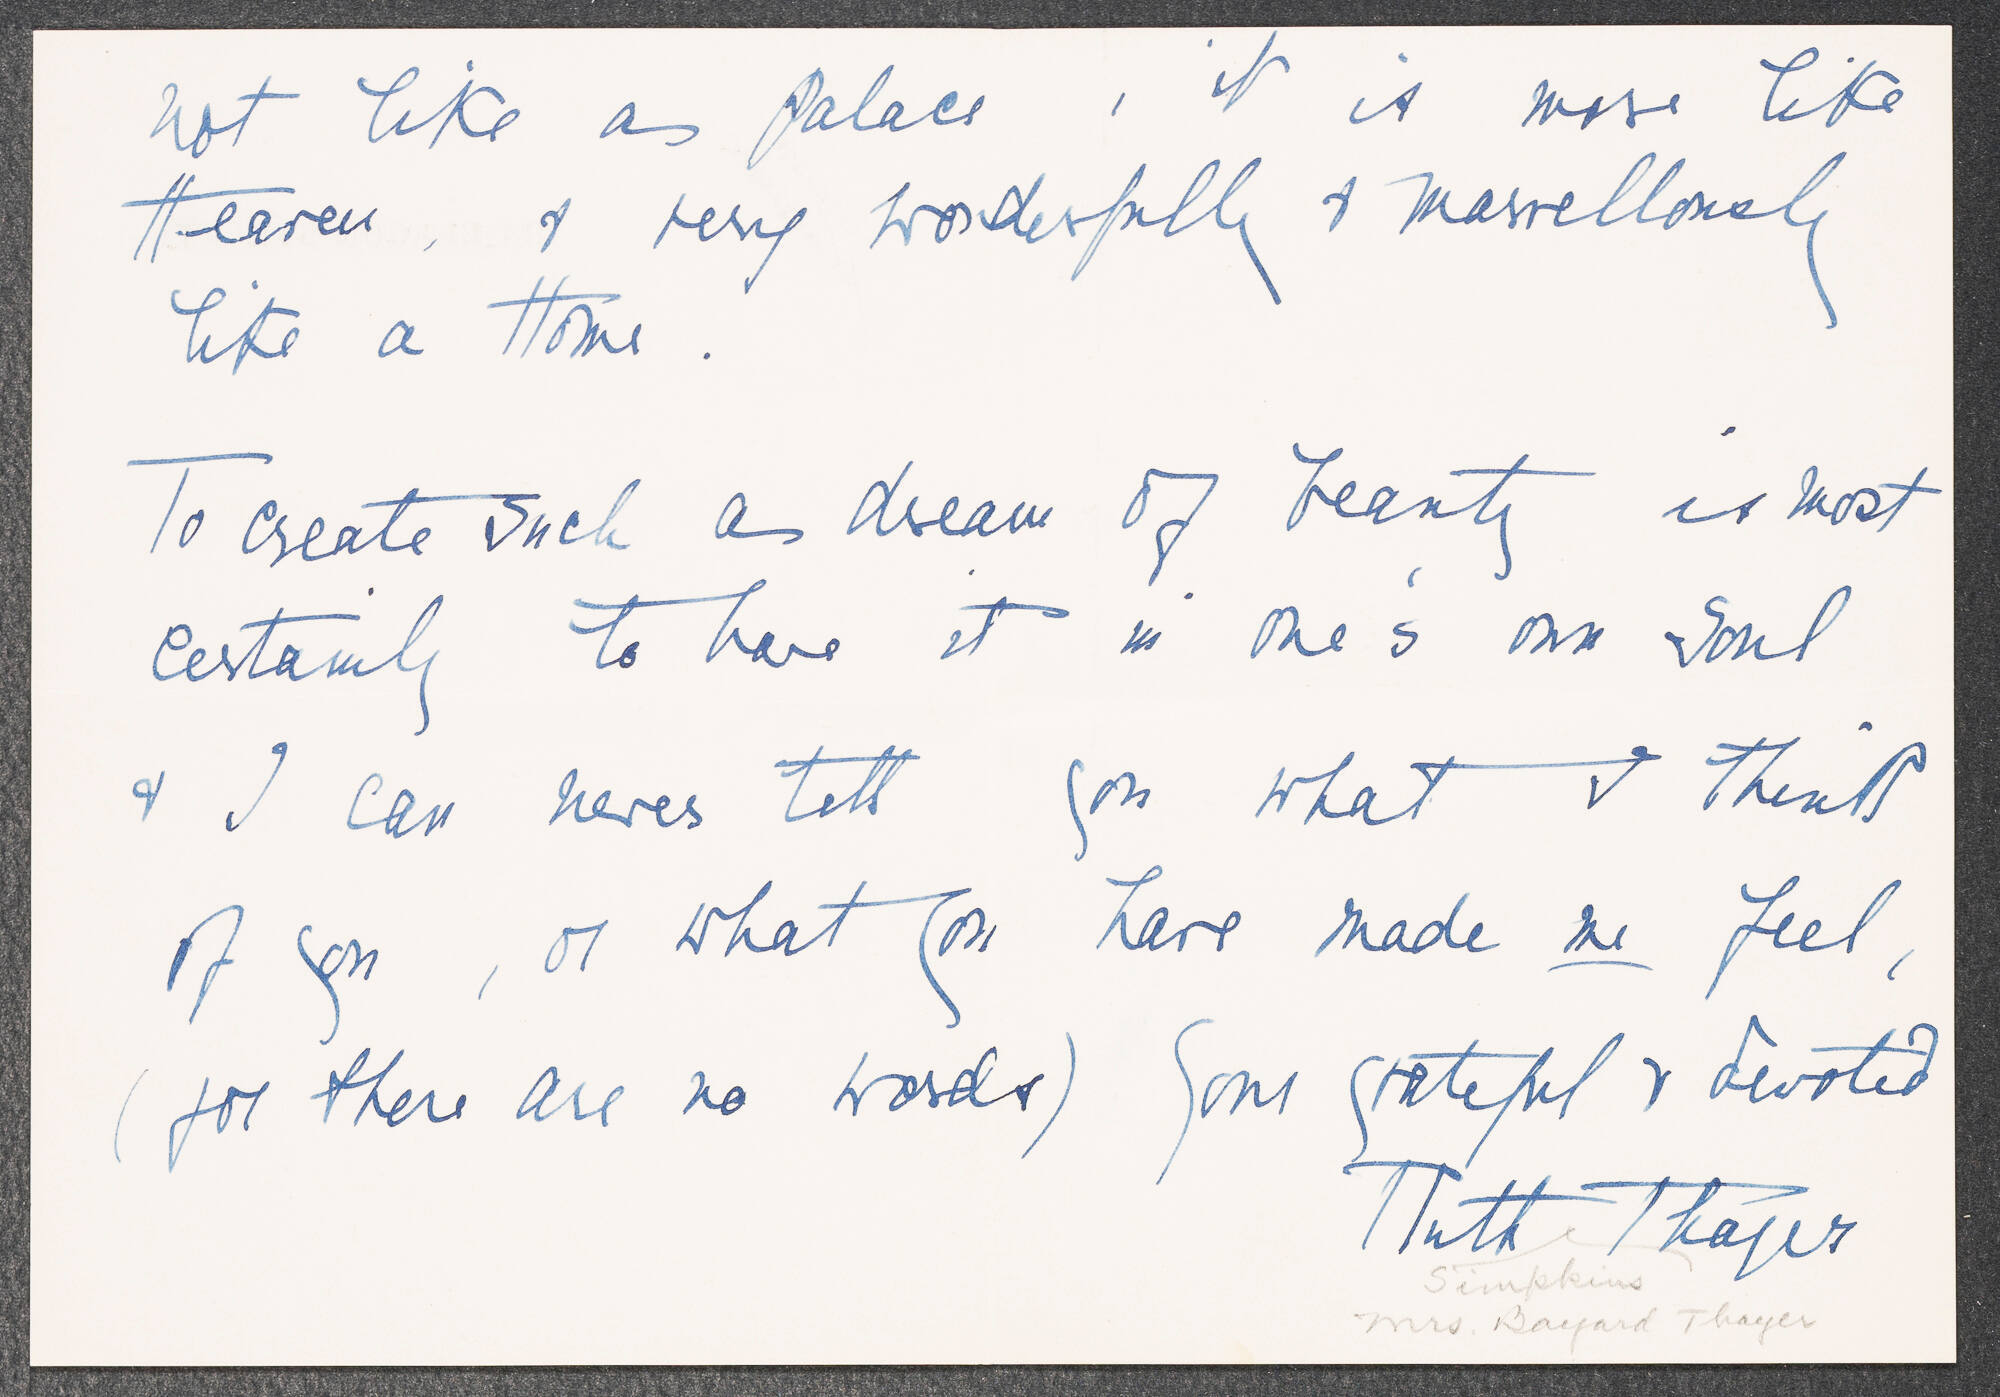 not like a palace, it is more like
Heaven, & very wonderfully & marvellously
like a Home.
To create such a dream of beauty is most
certainly to have it in one's own soul
& I can never tell you what I think
of you, or what you have made me feel,
(for there are no words) Your grateful & devoted
Ruth Thayer
Simpkins
Mrs. Bayard Thayer